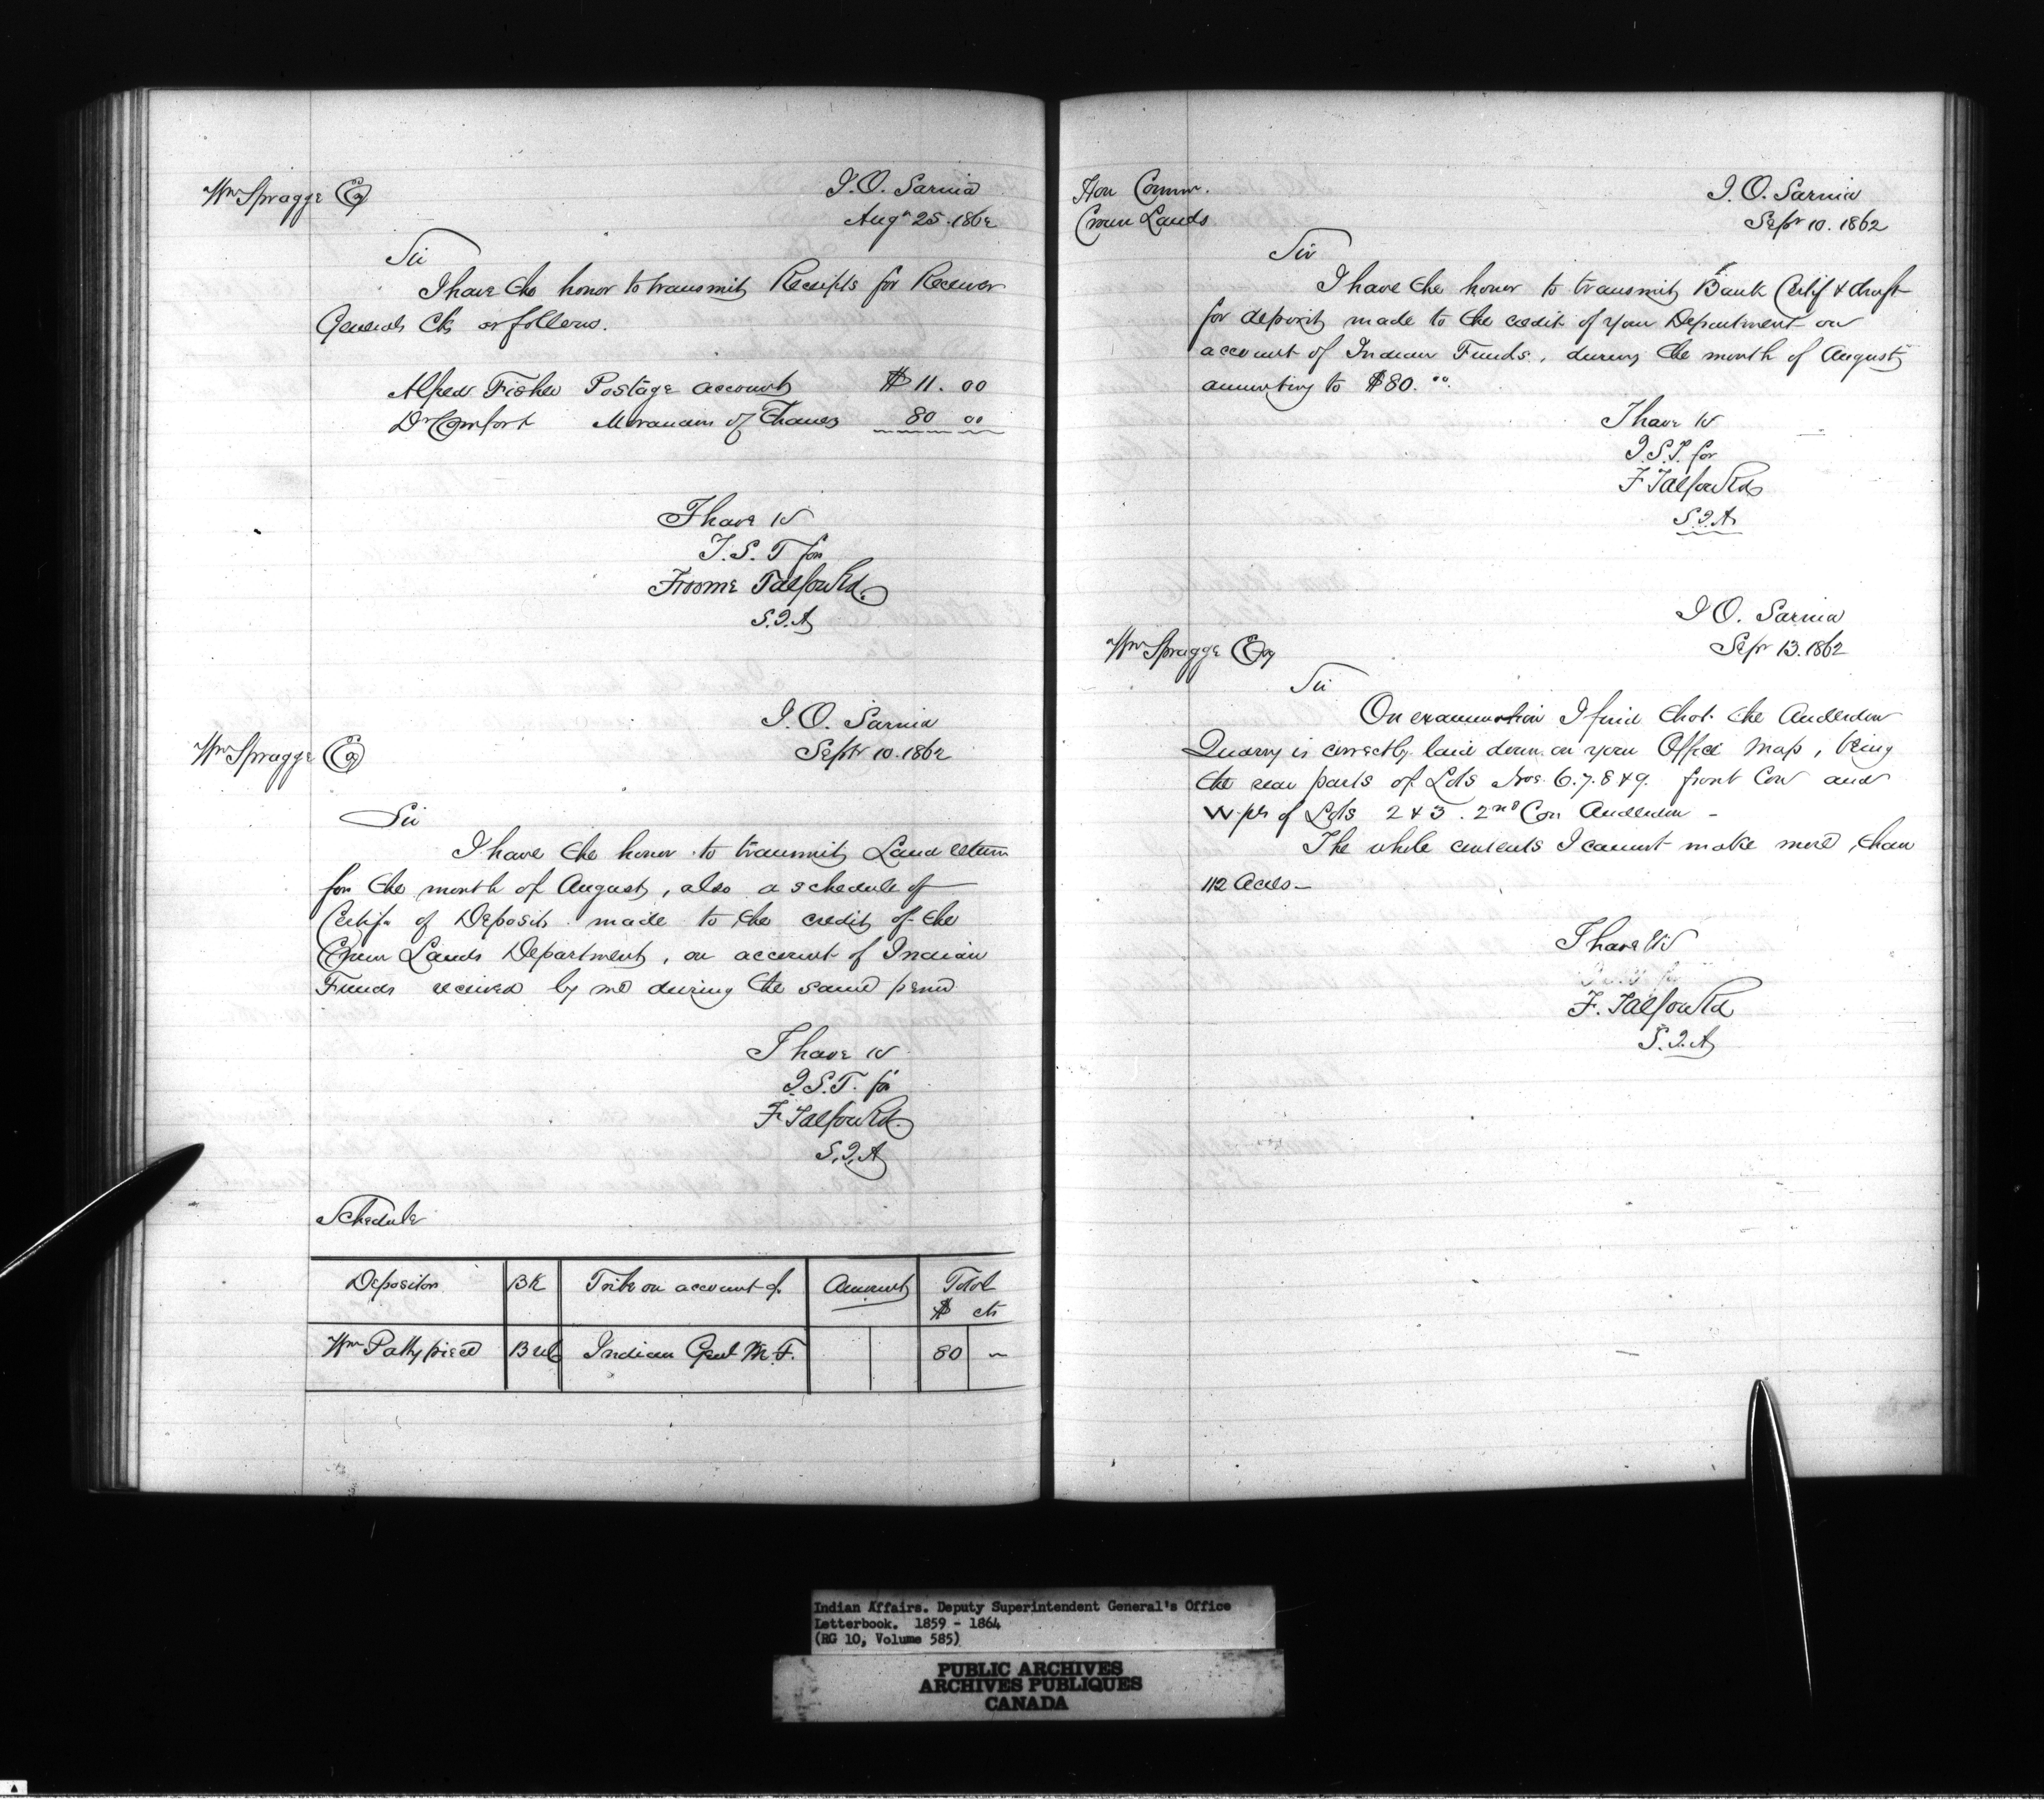 Wm Spragge Esq
I. O. Sarnia
Augt 25. 1862
Sir
I have the honor to transmit Receipts for Receiver
Generals Cks as follows.
Alfred Fisher Postage account $ 11. 00
Dr Comfort Moravians of Thames 80 00
I have &c
I. S. T for
Froome Talfourd.
S. I. A
I. O. Sarnia
Septr 10. 1862
Wm Spragge Esq
Sir
I have the honor to transmit Land return
for the month of August, also a schedule of
Certifs of Deposit made to the credit of the
Crown Lands Department, on account of Indian
Funds received by me during the same period
I have &c
I. S. T. for
F Talfourd.
S. I. A
Schedule
Depositor BK Tribe on account of Amount Total
$ cts
Wm Pattypiece Indian Genl M. F. 80 –
Hon Commr.
Crown Lands
I. O. Sarnia
Sepr 10. 1862
Sir
I have the honor to transmit Bank Certif & draft
for deposit made to the credit of your Department on
account of Indian Funds, during the month of August
amounting to $80. 00.
I have &c
I. S. T. for
F Talfourd
S. I. A
I O. Sarnia
Sepr 13. 1862
Wm Spragge Esq
Sir
On examination I find that the Anderdon
Quarry is correctly laid down on your Office map, being
the rear parts of Lots Nos. 6. 7. 8 & 9. front Con and
W. pts of Lots 2 & 3. 2nd Con Anderdon –
The whole contents I cannot make more than
112 Acres –
I have &c
F. Talfourd
S. I. A
Indian Affairs. Deputy Superintendent General's Office
Letterbook. 1859 - 1864
(RG 10, Volume 585)
PUBLIC ARCHIVES
ARCHIVES PUBLIQUES
CANADA